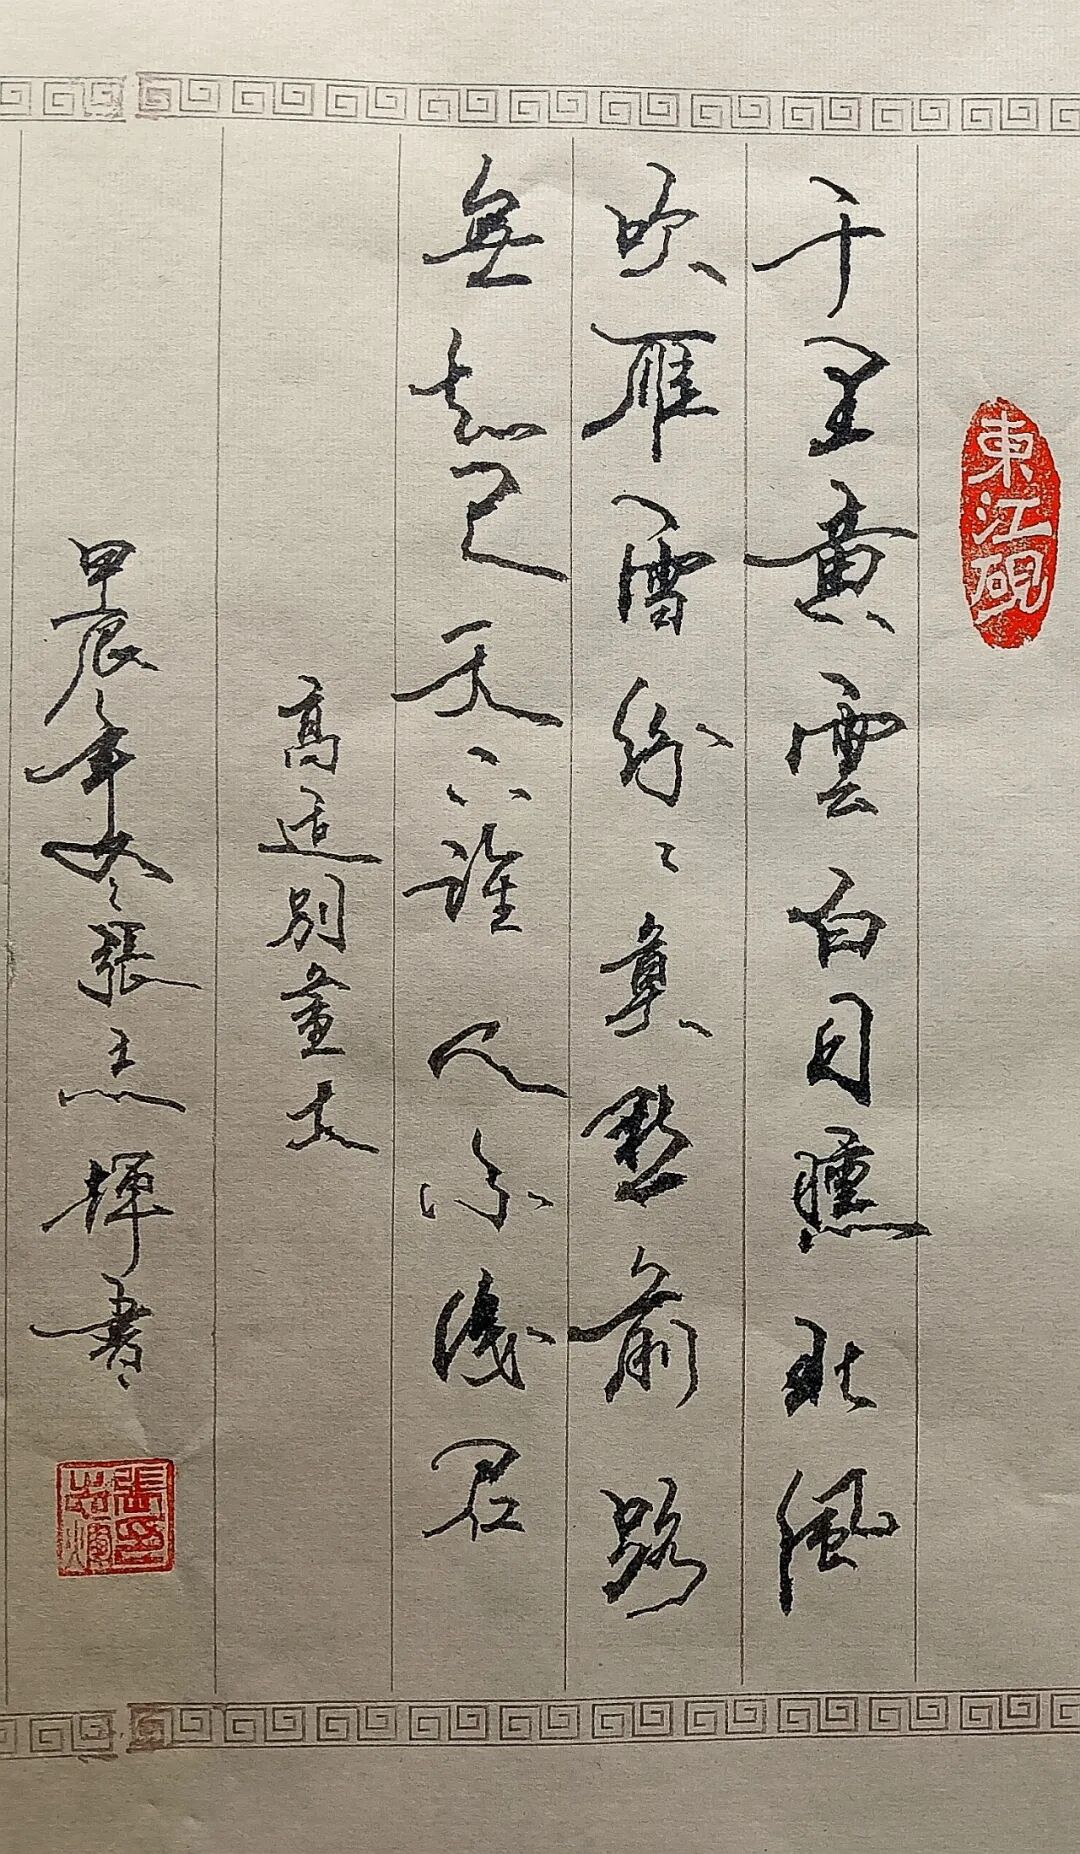 東江硯
千里黄雲白日曛北風
吹雁雪紛〻莫愁前路
無知己天下誰人不識君
高適別董大
甲辰年冬張志輝書